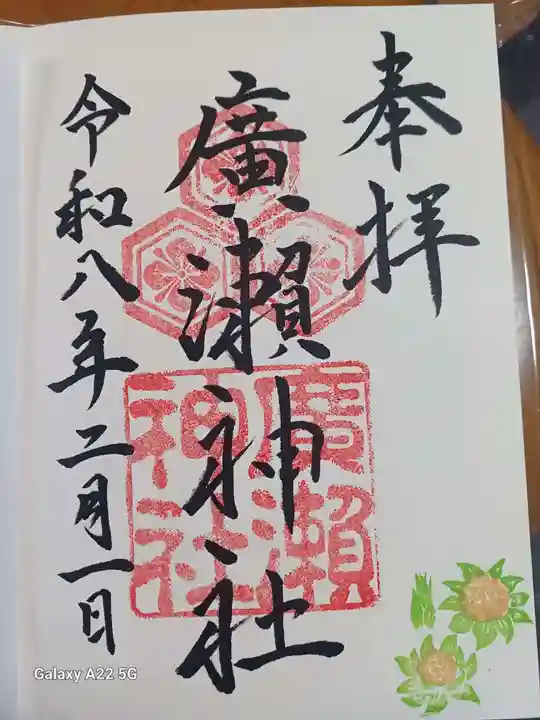 奉拝
廣瀬神社
廣瀬神社
令和八年二月一日
Galaxy A22 5G